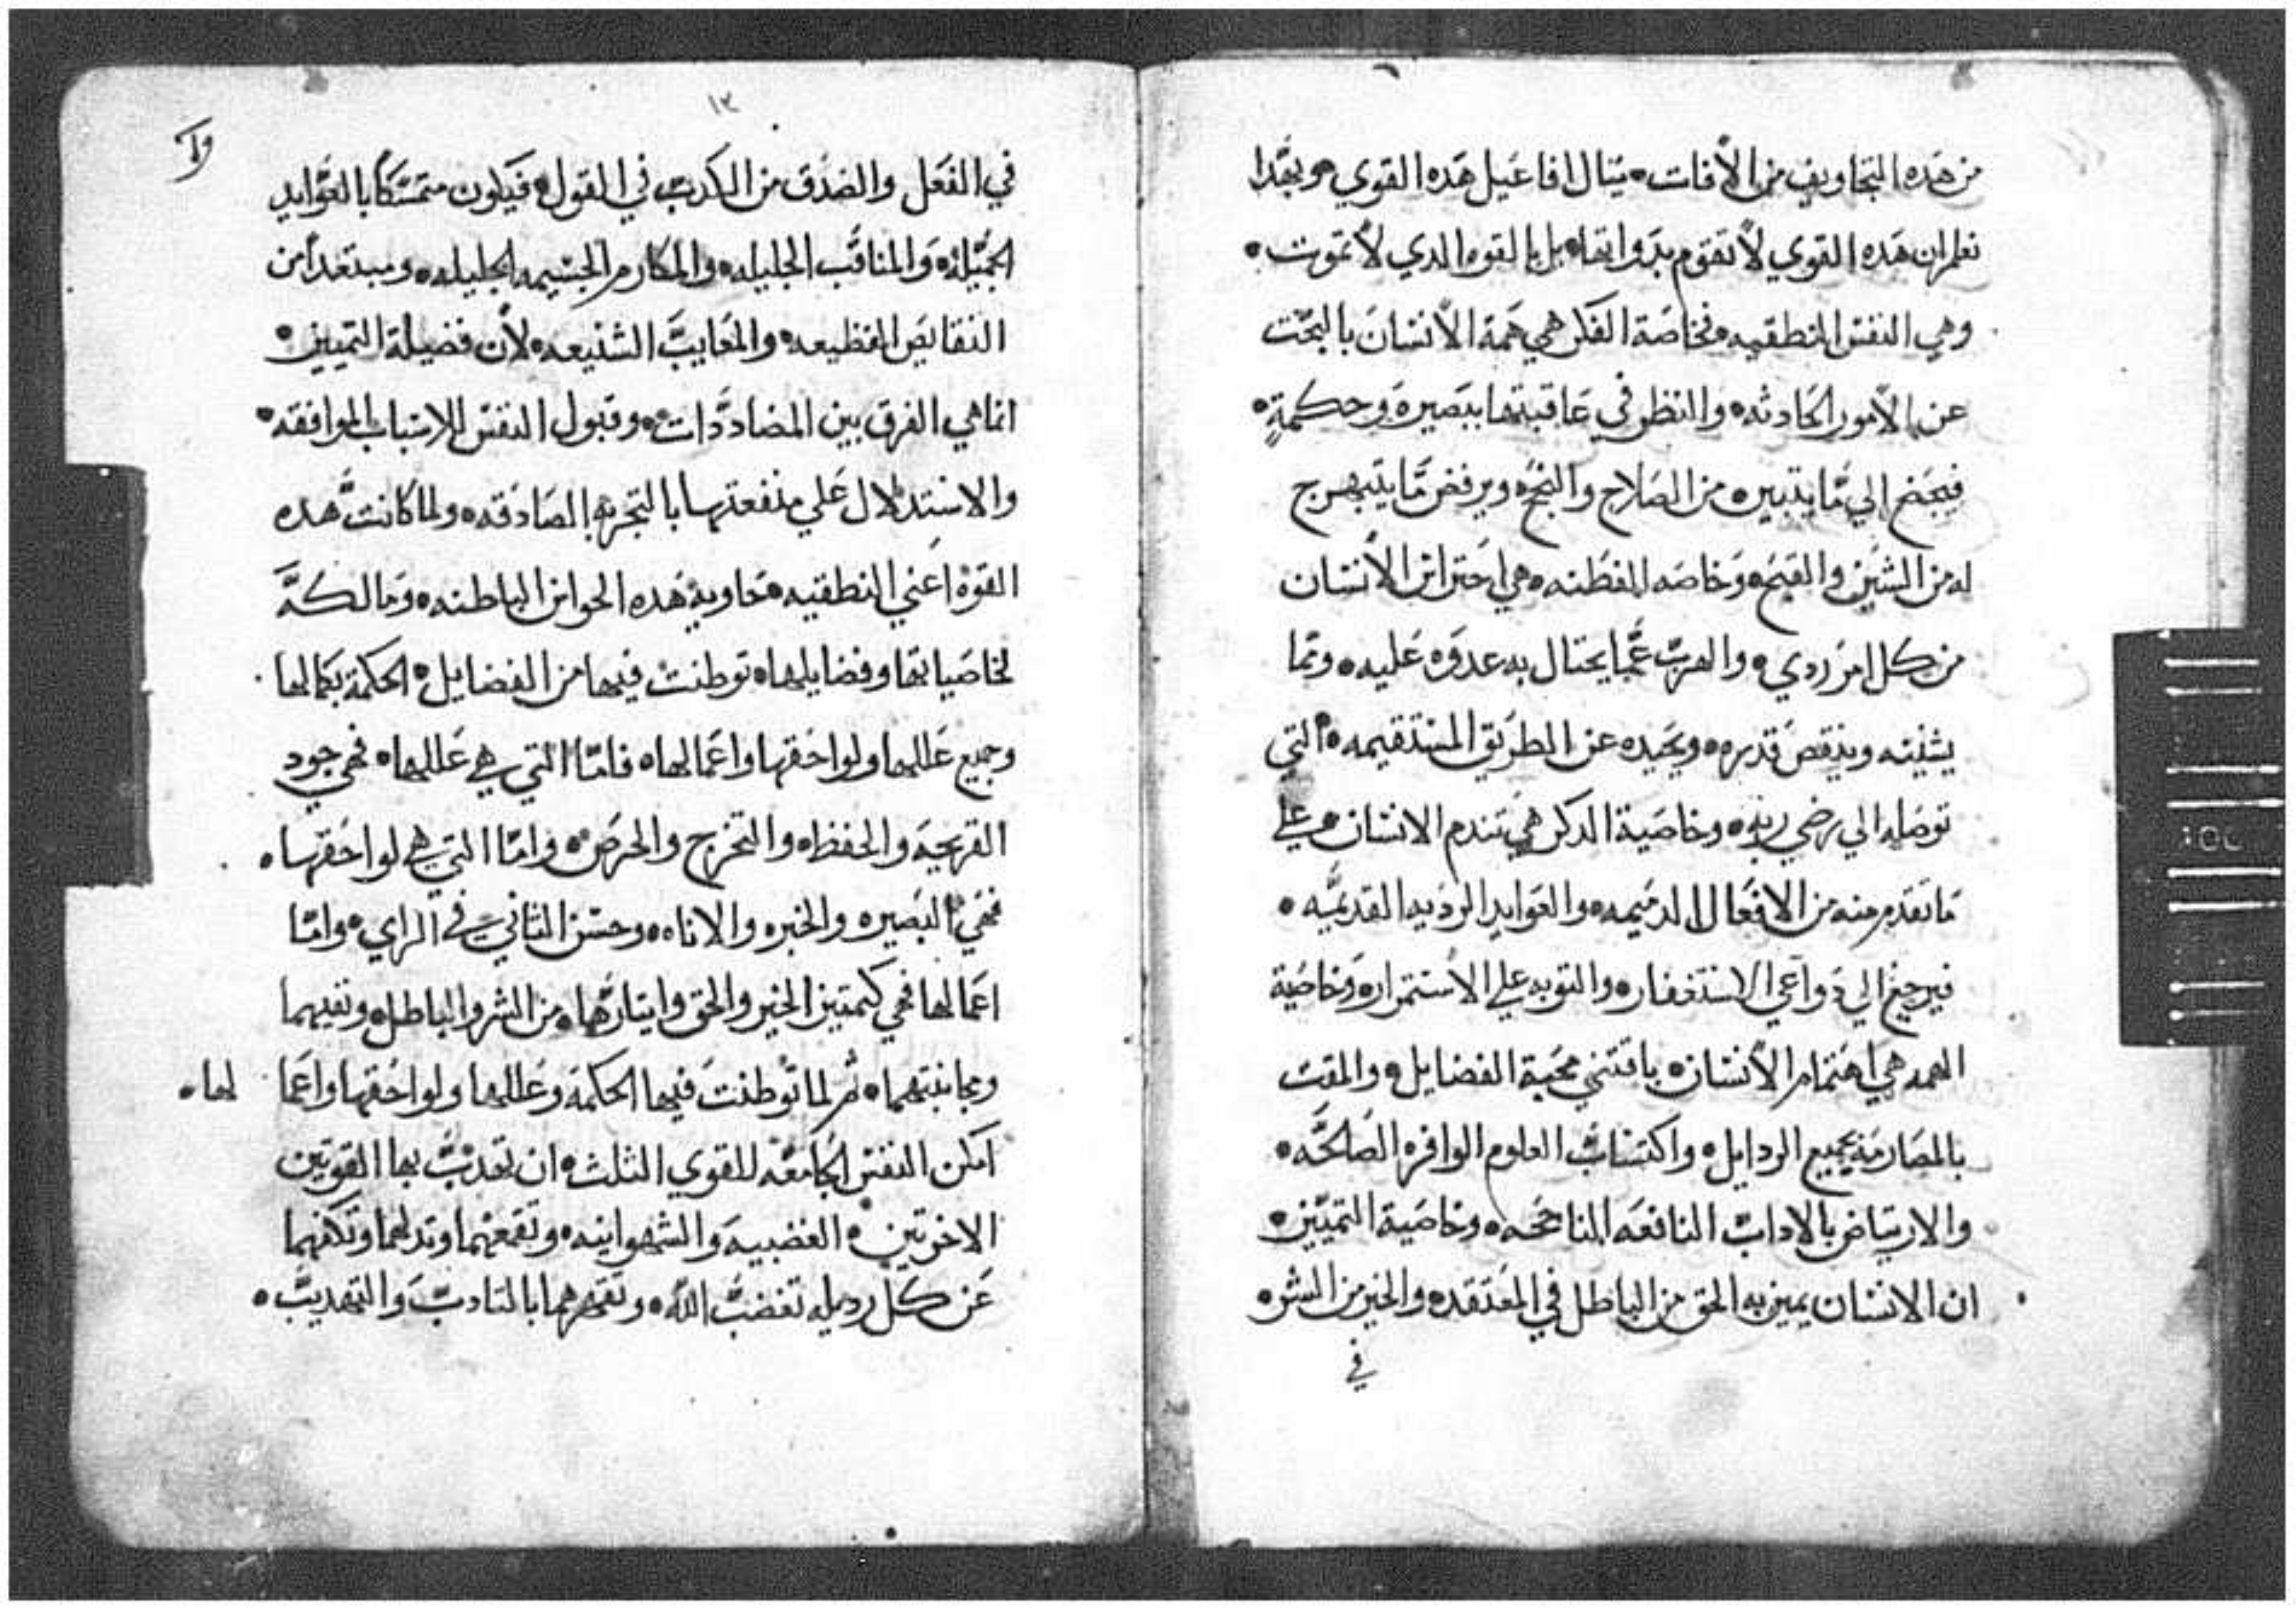 من هده التجاويف من الأفات • ينال افاعيل هده القوي • وبهدا
نعلم ان هده القوي لا تقوم بدواتها • بل بالقوه الدي لا تموت •
وهي النفس النطقيه • فخاصة الفكر هي همة الأنسان بالبحت
عن الأمور الحادثه • والنظر في عاقبتها ببصيرة وحكمةٍ •
فيجنح الي ما يتبين من الصلاح والنجح • ويرفض ما يتبهرج
له من الشين والقبح • وخاصه الفطنه • هي احتراس الأنسان
من كل امر ردي • والهرب عما يحتال به عدوه عليه • ومما
يشينه وينقص قدره • ويحيده عن الطريق المستقيمه • التي
توصله الي رضي ربه • وخاصية الدكر هي تندم الانسان • علي
ما تقدم منه من الافعال الدميمه • والعوايد الرديه القديمه •
فيرجع الي دواعي الاستغفار • والتوبه علي الاستمرار • وخاصية
الهمه هي اهتمام الأنسان • باقتني محبة الفضايل • والمقت
بالمصارمة بجميع الردايل • واكتساب العلوم الوافره الصالحه •
والارتياض بالاداب النافعه الناجحه • وخاصية التمييز •
ان الانسان يميز به الحق من الباطل في المعتقد • والخير من الشر •
في
١٣
في الفعل والصدق من الكدب في القول • فيكون متمسكا بالعوايد
الجميلة • والمناقب الجليله • والمكارم الجسيمه الجليله • ومبتعداً من
النقايص الفظيعه • والمعايب الشنيعه • لأن فضيلة التمييز •
انما هي الفرق بين المضاددات • وقبول النفس للاسباب الموافقه •
والاستدلال علي منفعتها بالتجربه الصادقه • ولما كانت هده
القوة اعني النطقيه • حاوية هده الحواس الباطنه • ومالكة
لخاصياتها وفضايلها • توطنت فيها من الفضايل • الحكمة بكمالها
وجميع عللها ولواحقها واعمالها • فاما التي هي عللها • فهي جود
القريحه والحفظ • والتخرج والحرص • واما التي هي لواحقها •
فهي البصيره والخبره والاناه • وحسن التاني في الراي • واما
اعمالها فهي كتمييز الخير والحق وايتارهما • من الشر والباطل • ونفيهما
ومجانبتهما • ثم لما توطنت فيها الحكمة وعللها ولواحقها واعما لها •
امكن النفس الجامعه للقوي الثلث • ان تهدب بها القوتين
الاخرتين • الغضبيه والشهوانيه • وتقمعهما وتدلهما وتكفهما
عن كل رديله تغضب الله • وتقهرهما بالتاديب والتهديب •